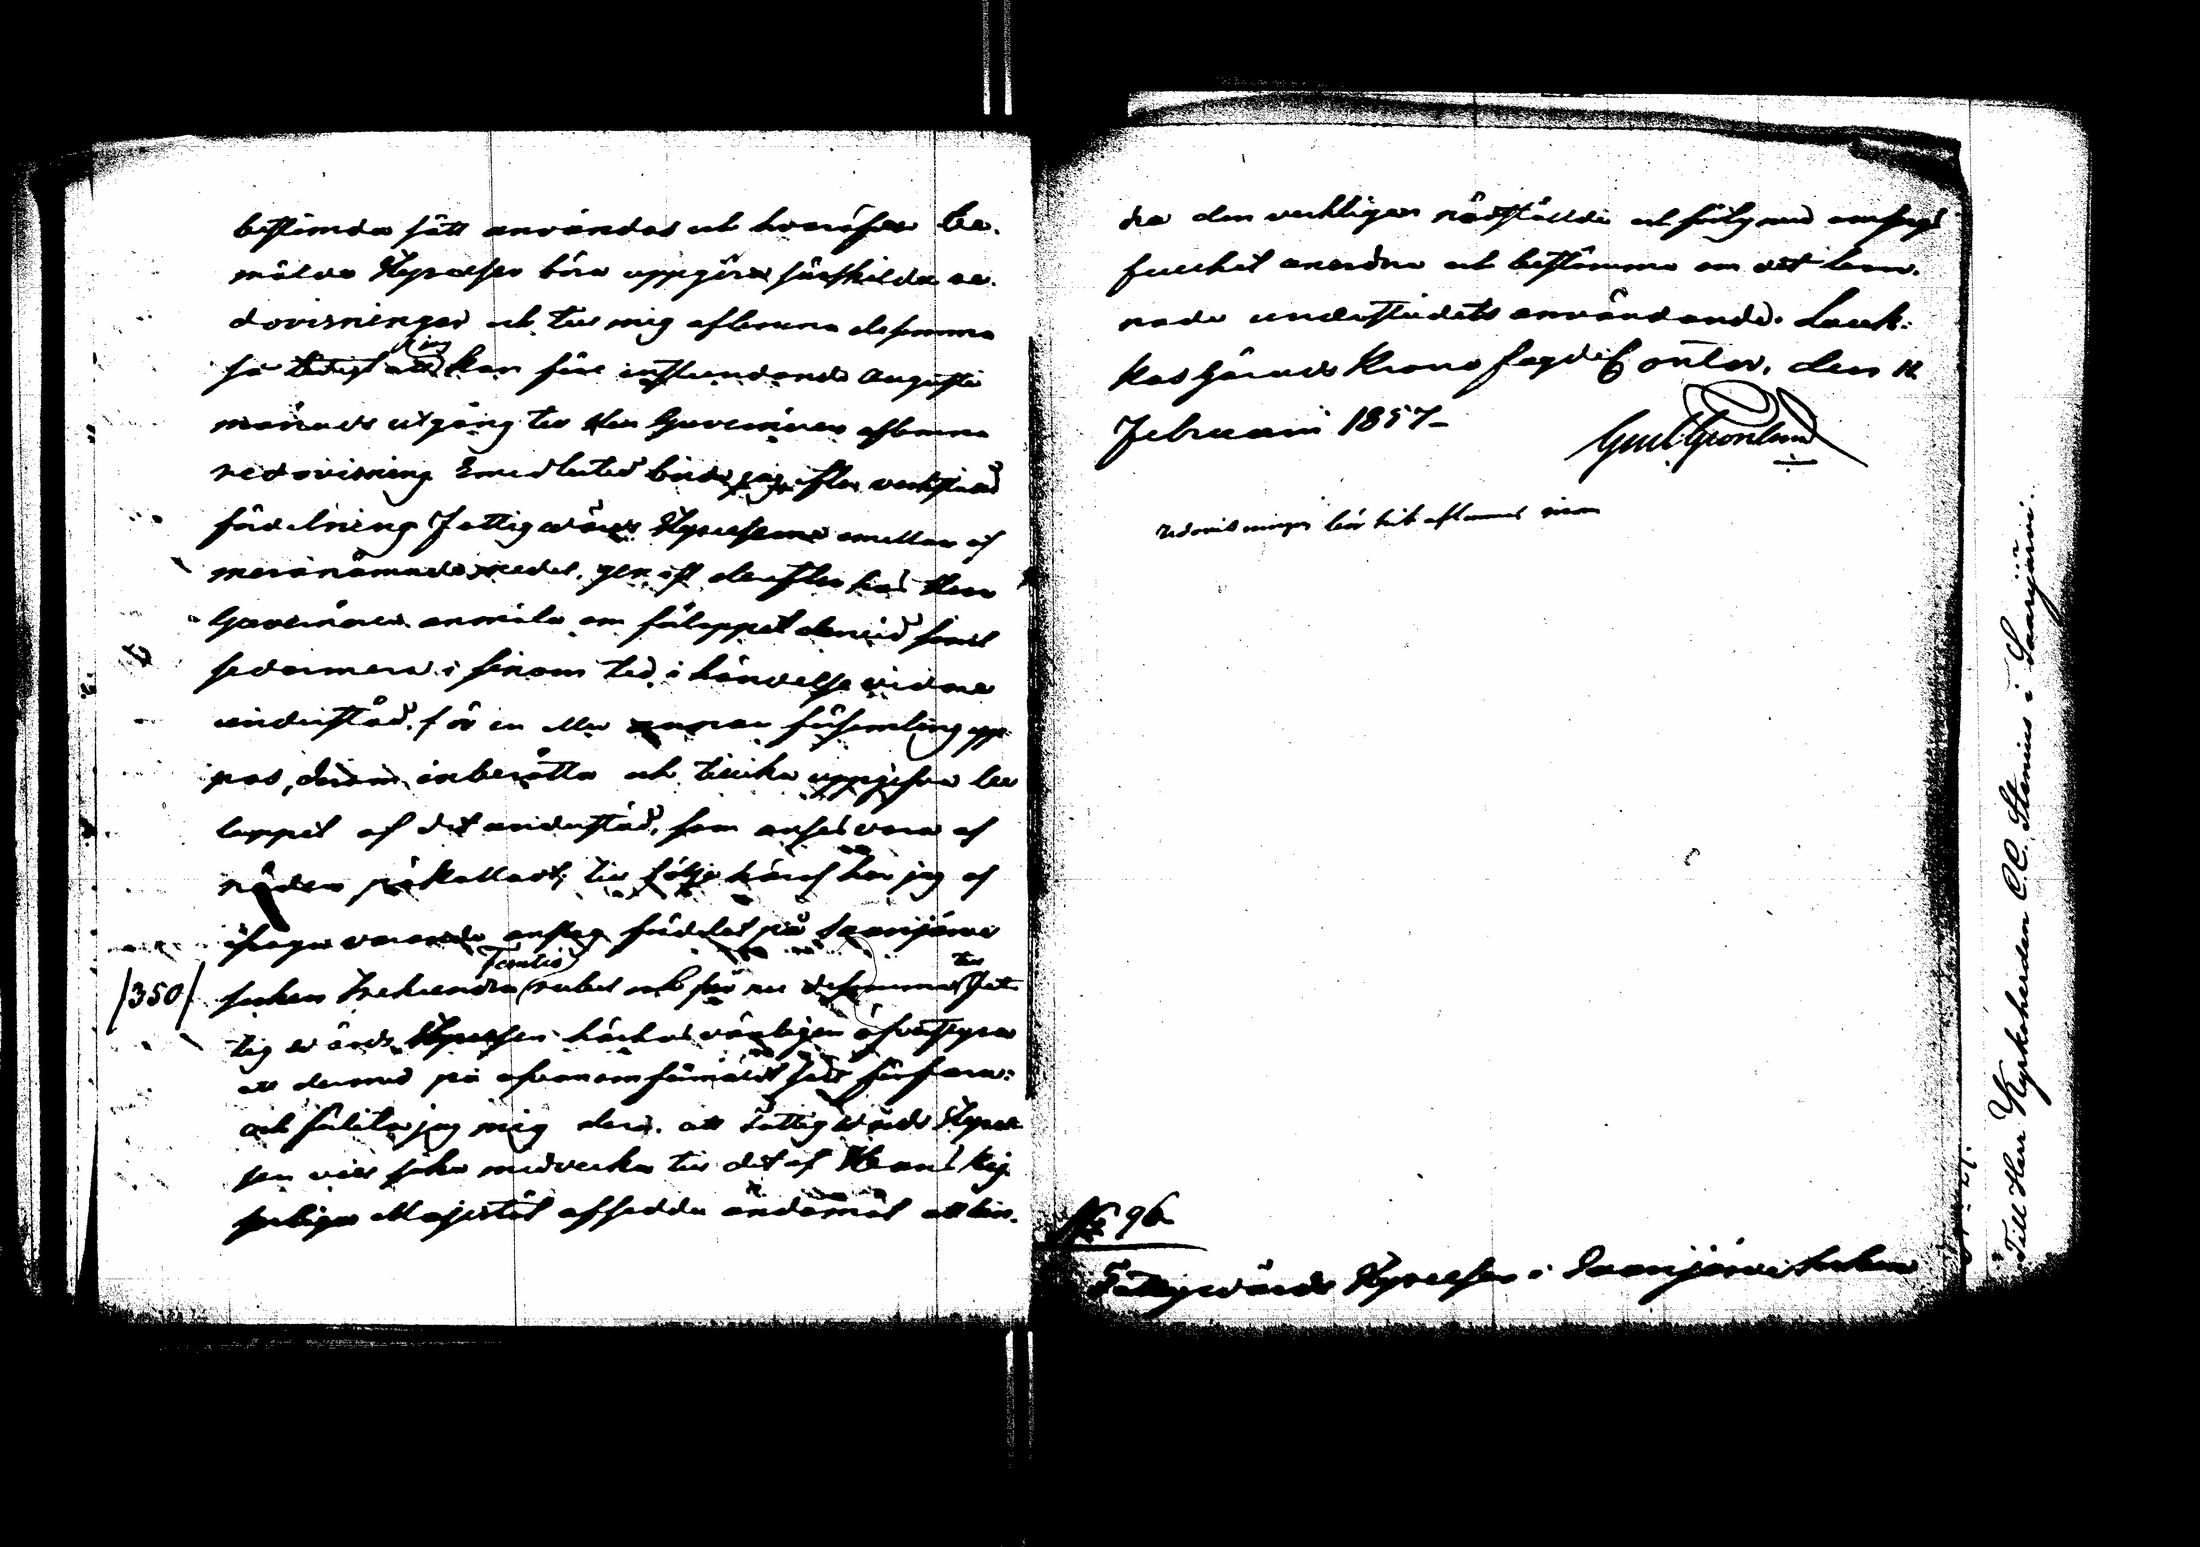 bestämda sätt användas och hvaröfver be-
mälda Styrelser böra uppgöra särskilda re-
dovisningar och till mig aflemna desamma
så tidigt att jag kan före instundande Augusti
månads utgång till Herr Gouverneuren aflemna
redovisning Emedlertid borde jag efter verkstäld
fördelning Fattigvårds Styrelserne emellan af
meranämnda medel, genast derefter hos Herr
Gouverneuren anmäla om förloppet dervid samt
sedermera i sinom tid, i händelse vidare
understöd för en eller annan församling upp-
pas, derom inberätta och tillika uppgifva be
loppet af det understöd, som anses vara af
nöden påkalladt; till följe häraf har jag af
ifråga varande anslag fördelat på Saarijärvi
/350/ socken Trehundra Femtio rubel och får nu desamma till Fat
tigvårds Styrelsen härhos vänligen öfverstyra
att dermed på ofvanomförmäldt sätt förfara:
och förlitar jag mig dera, att Fattigvårds Styrel
sen vill söka medverka till det af Hans Kej
serliga Majestät afsedda ändamål att bin-
dra den verkligen nödstälde och följ med omsorgs
fullhet anordna och bestämma om det lem-
nade understödets användande. Lauk-
kas Härads Krono fogde Contor, den 11
Februari 1857-
Gust Grönlund
redovisningen bör hit aflemnas innan
No 96
Fattigvårds Styrelsen i Saarijärvi Socken
Till Herr Kyrkoherden C.C. Stenius i Saarijärvi.